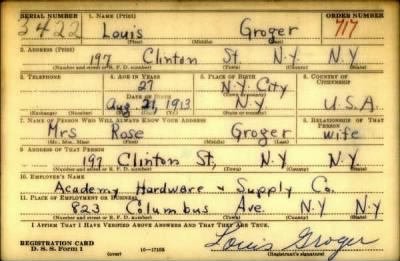 SERIAL NUMBER 1. NAME (Print) ORDER NUMBER
3422 Louis Groger 717
(First) (Middle) (Last)
2. ADDRESS (Print)
197 Clinton St N.Y N.Y
(Number and street or R. F. D. number) (Town) (County) (State)
3. TELEPHONE 4. AGE IN YEARS 5. PLACE OF BIRTH 6. COUNTRY OF CITIZENSHIP
27 N.Y. City
DATE OF BIRTH (Town or county)
Aug 21, 1913 N.Y U.S.A.
(Exchange) (Number) (Mo.) (Day) (Yr.) (State or country)
7. NAME OF PERSON WHO WILL ALWAYS KNOW YOUR ADDRESS 8. RELATIONSHIP OF THAT PERSON
Mrs Rose Groger wife
(Mr., Mrs., Miss) (First) (Middle) (Last)
9. ADDRESS OF THAT PERSON
197 Clinton St, N.Y N.Y
(Number and street or R. F. D. number) (Town) (County) (State)
10. EMPLOYER'S NAME
Academy Hardware & Supply Co.
11. PLACE OF EMPLOYMENT OR BUSINESS
823 Columbus Ave. N.Y N.Y
(Number and street or R. F. D. number) (Town) (County) (State)
I AFFIRM THAT I HAVE VERIFIED ABOVE ANSWERS AND THAT THEY ARE TRUE.
REGISTRATION CARD
D. S. S. Form 1 (over) Louis Groger
(Registrant's signature)